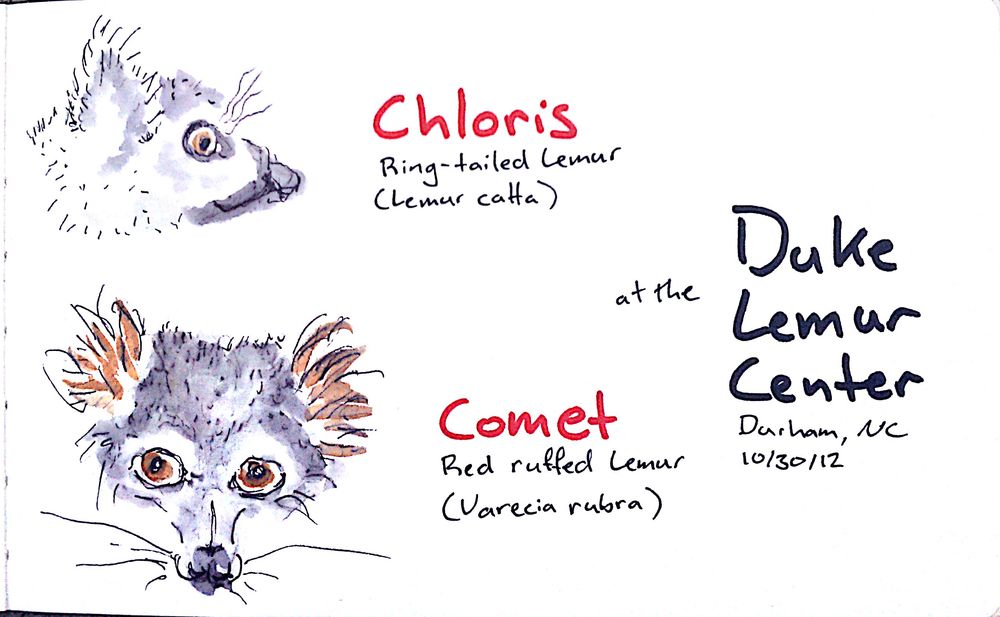 Chloris
Ring-tailed Lemur
(Lemur catta)
Comet
Red ruffed Lemur
(Varecia rubra)
at the
Duke
Lemur
Center
Durham, NC
10/30/12